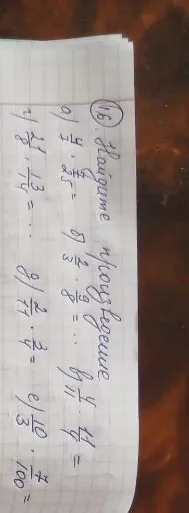 16. Найдите произведение
а) 4/7 · /25 = б) 2/3 · 9/8 = ... в) 4/11 · 11/4 =
г) 21/8 · 13/14 = ... д) 2/11 · 3/4 = е) 10/3 · 7/100 =